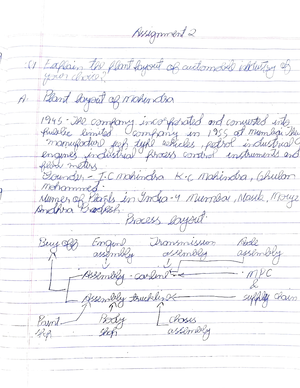 Assignment 2
Explain the plant layout of automobile industry of your choice?
A. Plant layout of Mahindra
1945 - The company incorporated and converted into
public limited company in 1955 at Mumbai. The
manufacture jeep type vehicles, petrol industrial
engines, industrial process control instruments and
meters.
Founder - J.C Mahindra K.C Mahindra, Ghulam
Mohammed.
Number of Plants in India - 4 Mumbai, Nasik,
Andhra Pradesh
Process layout
Buy off Engine assembly Transmission assembly Axle assembly
Assembly M&C
&
Assembly supply chain
Paint shop Body shop assembly